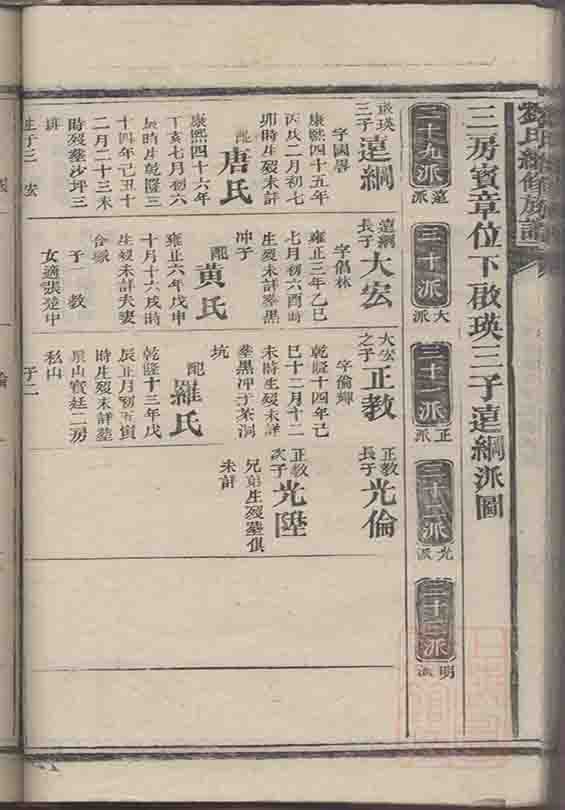 劉氏續修族譜
三房賓章位下啟瑛三子遠綱派圖
二十九派
遠派
三十派
大派
三十一派
正派
三十二派
光派
三十三派
明派
啟瑛
三子
遠綱
字國畧
康熙四十五年
丙戌二月初七
卯時生歿未詳
配
唐氏
康熙四十六年
丁亥七月初六
辰時生乾隆三
十四年己丑十
二月二十三未
時歿塟沙坪三
排
生子三 女
遠綱
長子
大宏
字倡林
雍正三年乙巳
七月初六酉時
生歿未詳塟黑
冲子
配
黄氏
雍正六年戊申
十月十六戌時
生歿未詳夫妻
合塚
子一 教
女適張楚中
大宏
之子
正教
字倫輝
乾隆十四年己
巳十二月十二
未時生歿未詳
塟黑冲子茶洞
坑
配
羅氏
乾隆十三年戊
辰正月初五寅
時生歿未詳塟
星山實廷二房
私山
子二
正教
長子
光倫
正教
次子
光陞
兄弟生歿塟俱
未詳